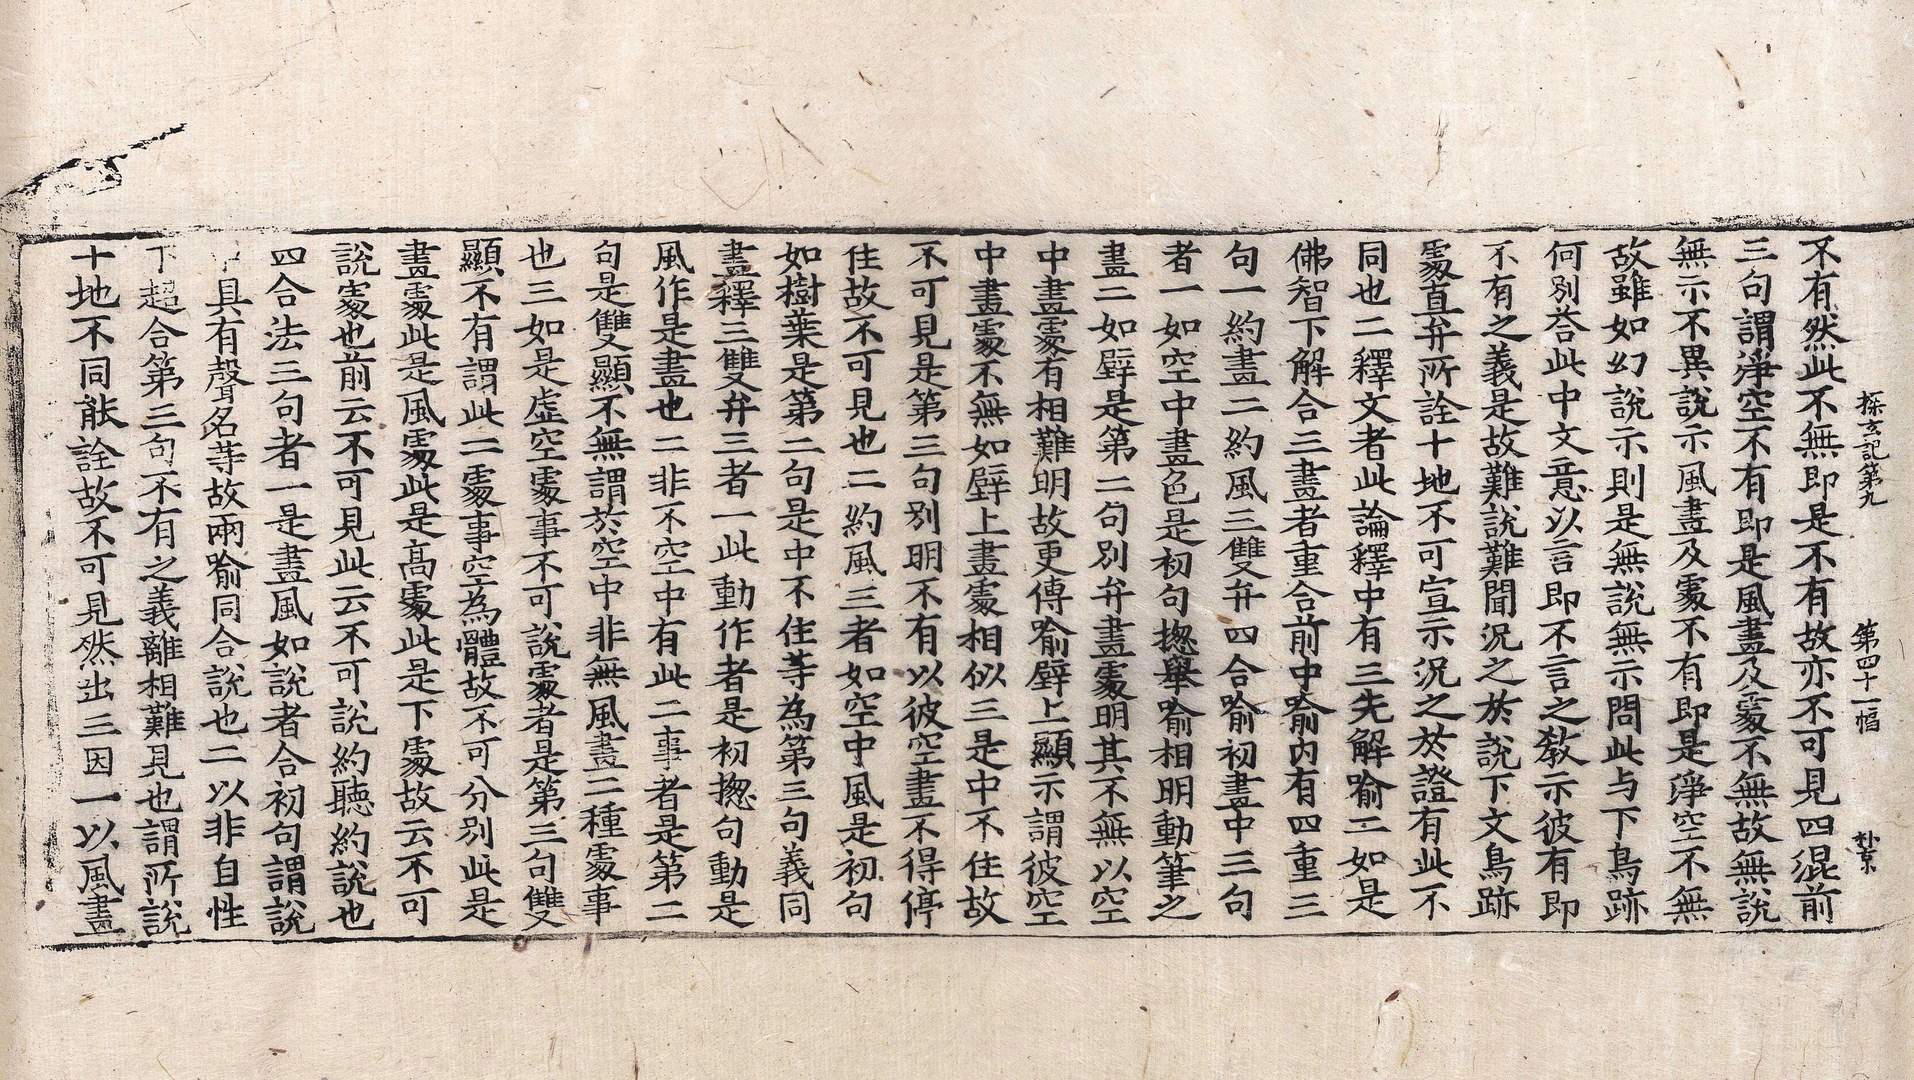 探玄記第九　第四十一幅　朴葇
不有然此不無即是不有故亦不可見四混前
三句謂淨空不有即是風畫及處不無故無說
無示不異說示風畫及處不有即是淨空不無
故雖如幻說示則是無說無示問此与下鳥跡
何別荅此中文意以言即不言之教示彼有即
不有之義是故難說難聞況之於說下文鳥跡
處直弁所詮十地不可宣示況之於證有此不
同也二釋文者此論釋中有三先解喻二如是
佛智下解合三畫者重合前中喻內有四重三
句一約畫二約風三雙弁四合喻初畫中三句
者一如空中畫色是初句揔舉喻相明動筆之
畫二如壁是第二句別弁畫處明其不無以空
中畫處有相難明故更傳喻壁上顯示謂彼空
中畫處不無如壁上畫處相似三是中不住故
不可見是第三句別明不有以彼空畫不得停
住故不可見也二約風三者如空中風是初句
如樹葉是第二句是中不住等為第三句義同
畫釋三雙弁三者一此動作者是初揔句動是
風作是畫也二非不空中有此二事者是第二
句是雙顯不無謂於空中非無風畫二種處事
也三如是虛空處事不可說處者是第三句雙
顯不有謂此二處事空為體故不可分別此是
畫處此是風處此是高處此是下處故云不可
說處也前云不可見此云不可說約聽約說也
四合法三句者一是畫風如說者合初句謂說
中具有聲名等故兩喻同合說也二以非自性
下超合第三句不有之義離相難見也謂所說
十地不同能詮故不可見然出三因一以風畫